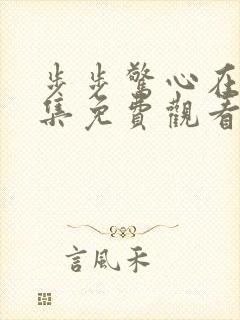 步步驚心在
集免費觀看
言風禾